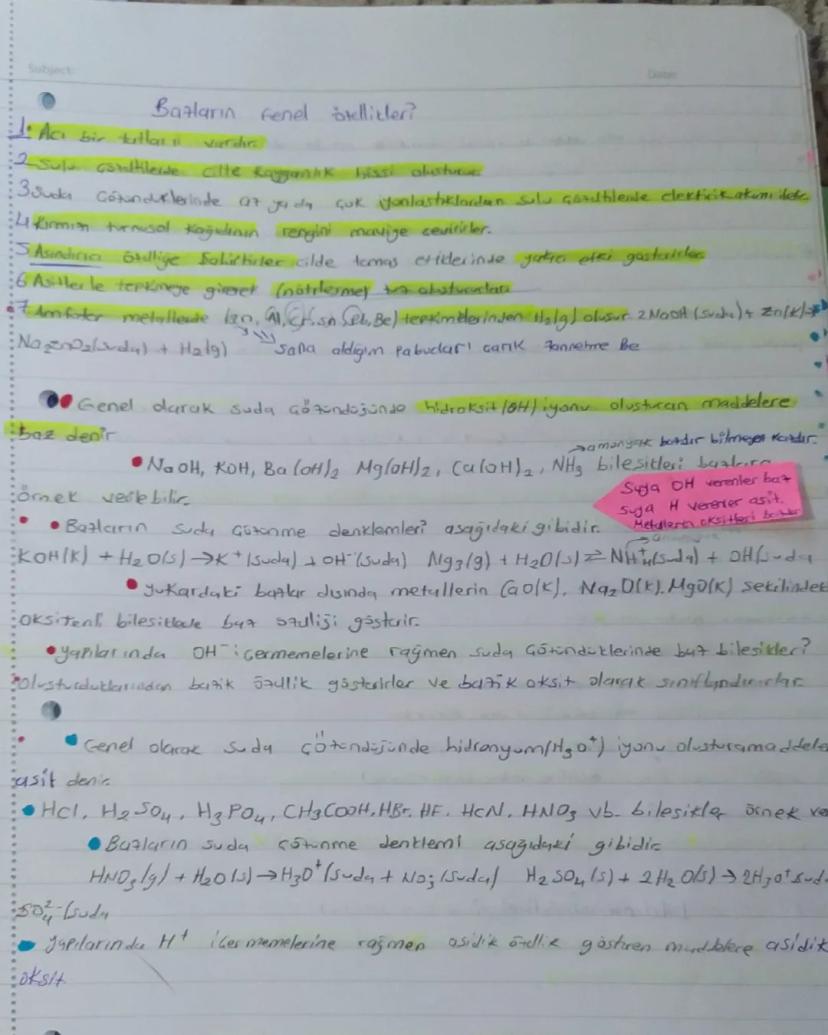 Subject: Date:
Bazların Genel özellikleri?
1. Acı bir tatları vardır.
2-Sulu çözeltilerde ciltte kayganlık hissi oluşturur.
3 Suda çözündüklerinde az ya da çok iyonlaştıklarından sulu çözeltilerde elektrik akımı iletir
4 kırmızı turnusol kağıdının rengini maviye çevirirler.
5 Aşındırıcı özelliğe sahiptirler cilde temas ettiklerinde yakıcı etki gösterirler
6 Asitlerle tepkimeye girerek (nötrleşme) tuz oluştururlar
7 Amfoter metallerle (zn, Al, Cr, sn, Pb, Be) tepkimelerinden H2(g) oluşur 2NaOH (suda) + Zn(k) →
Na2ZnO2(suda) + H2(g) Sana aldığım pabuçları çarık zannetme Be
Genel olarak suda çözündüğünde hidroksit (OH) iyonu oluşturan maddelere
baz denir
→ amonyak bazdır bilmeyen kazdır.
• NaOH, KOH, Ba(OH)2 Mg(OH)2, Ca(OH)2, NH3 bileşikleri bazlara
örnek verilebilir.
Suya OH verenler baz
suya H verenler asit.
Metallerin oksitleri bazdır
• Bazların suda çözünme denklemleri? aşağıdaki gibidir.
KOH(k) + H2O(s) → K+(suda) + OH-(suda) Ng3(g) + H2O(s) ⇌ NH4+(suda) + OH(suda
• yukardaki bazlar dışında metallerin CaO(k), Na2O(k). MgO(k) şeklindeki
oksijenli bileşikleride baz özelliği gösterir.
• yapılarında OH- içermemelerine rağmen suda çözündüklerinde baz bileşikleri?
Oluşturduklarından bazik özellik gösterirler ve bazik oksit olarak sınıflandırırlar
• Genel olarak suda çözündüğünde hidronyum(H3O+) iyonu oluşturamaddele
asit denir.
• HCl, H2SO4, H3PO4, CH3COOH, HBr, HF, HCN, HNO3 vb. bileşikler örnek ve
• Bazların suda çözünme denklemi aşağıdaki gibidir
HNO3(g) + H2O(s) → H3O+(suda + NO3-(suda) H2SO4(s) + 2H2O(s) → 2H3O+ sud
SO4 2-(suda
• yapılarında H+ içermemelerine rağmen asidik özellik gösteren maddelere asidik
oksit